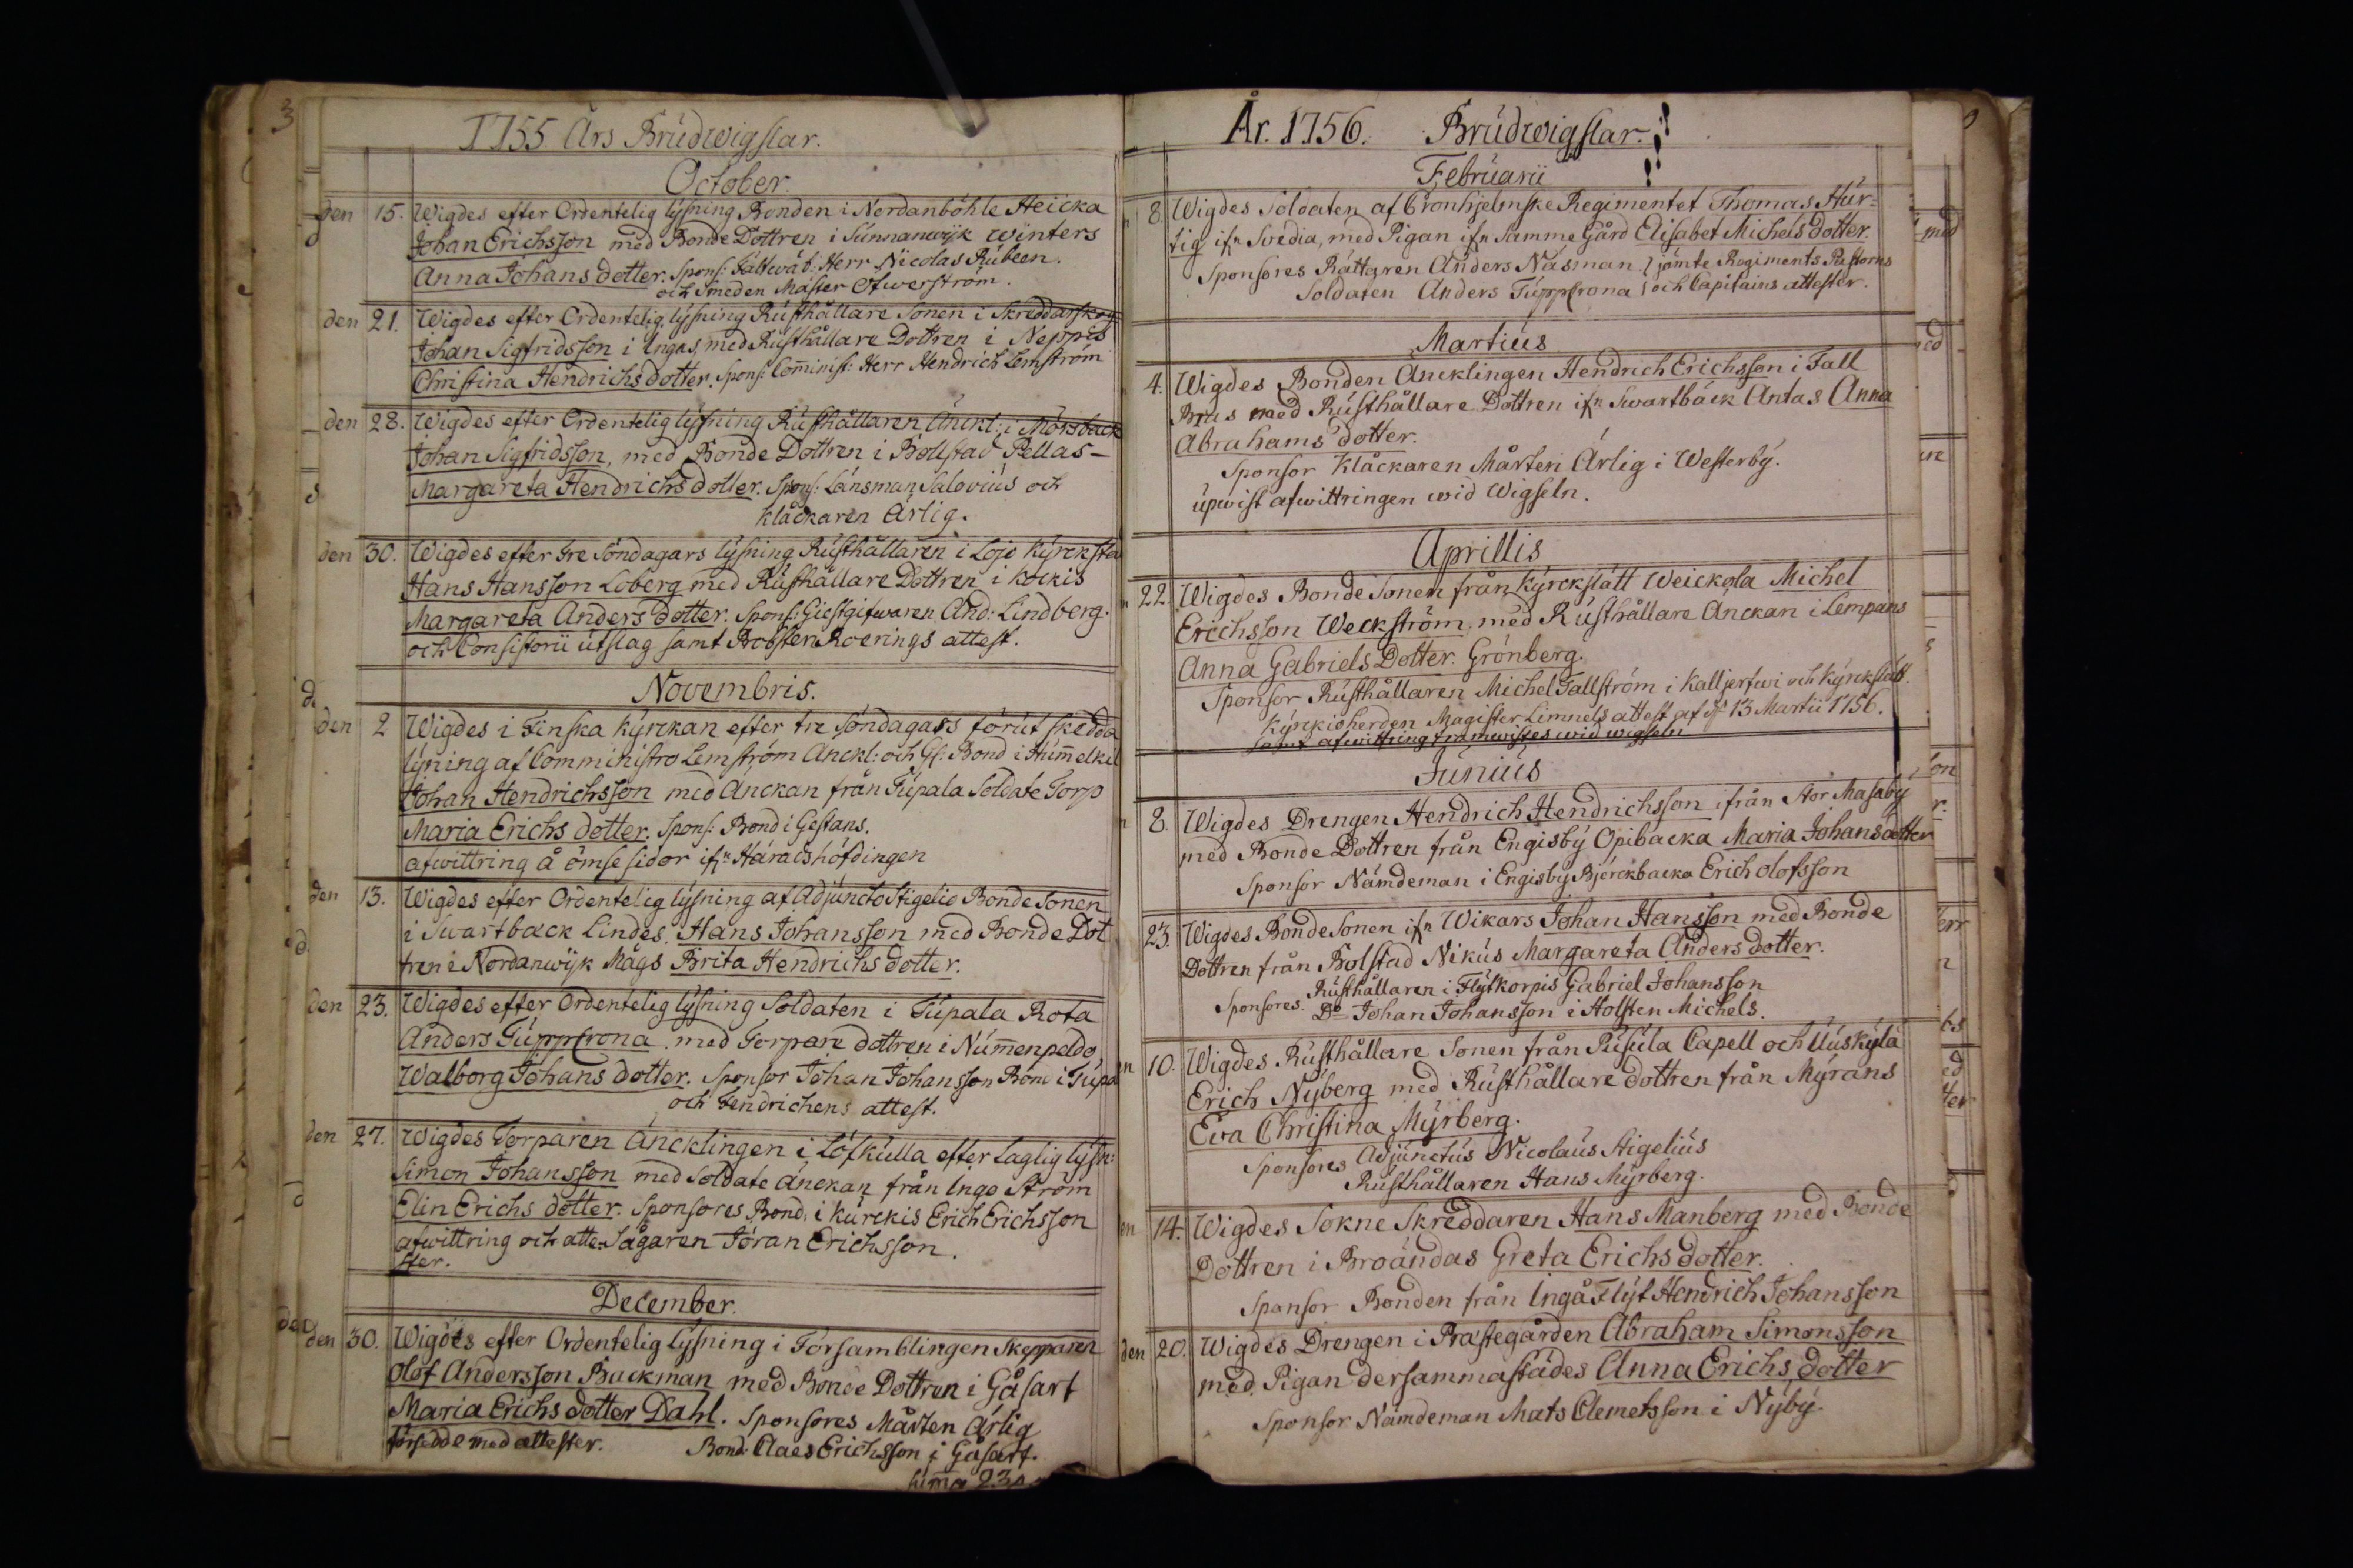 3
1755 Års Brúdwigslar.
October.
den 15. Wigdes efter Ordentelig lýsning Bonden i Nordanböhle Heicka
Johan Erichsson med Bonde Dottren i Sunnanwijk Winters
Anna Johans dotter. Spons: Fältwäb: Herr Nicolas Rubeen.
och Smeden Mäster Ofwerström.
den 21. Wigdes efter Ordentelig lýsning Rústhållare Sonen i Skreddarskog
Johan Sigfridsson i Ingås, med Rústhållare Dottren i Neppis
Christina Hendrichs dotter. Spons: Com̄inist: Herr Hendrich Lemström
den 28. Wigdes efter Ordentelig lýsning Rústhållaren Änckl: i Mörsback
Johan Sigfridsson, med Bonde Dottren i Bollstad Pellas-
Margareta Hendrichs dotter. Spons: Länsman Saloviús och
klåckaren Ärlig.
den 30. Wigdes efter tre Söndagars lýsning Rústhållaren i Lojo Kýrcksta
Hans Hansson Loberg med Rústhållare Dottren i Kockis
Margareta Anders dotter. Spons: Giestgifwaren And: Lindberg.
och Consistorii útslag samt Probsten Roerings attest.
Novembris.
den 2 Wigdes i Finska Kýrckan efter tre Söndagars förút skedda
lýsning af Comministro Lemström Änckl: och Gf: Bond i Húm̄elkil
Johan Hendrichsson med Änckan från Túpala Soldate Torp
Maria Erichs dotter. Spons: Bond i Gestans.
afwittring å ömse sidor ifn Häradshöfdingen
den 13. Wigdes efter Ordentelig lýsning af Adjuncto Stigelio Bonde Sonen
i Swartback Lindes. Hans Johansson med Bonde Dot
tren i Nordanwijk Mågs Brita Hendrichs dotter.
den 23. Wigdes efter Ordentelig lýsning Soldaten i Túpala Rota
Anders Túppcrona med Torpare dottren i Núm̄enpeldo
Walborg Johans dotter. Sponsor Johan Johansson Bond i Túpa
och Fendrichens attest.
den 27. Wigdes Torparen Äncklingen i Löfkulla efter laglig lýsn:
Simon Johansson med Soldate Änckan från Ingo Ström
Elin Erichs dotter. Sponsores Bond: i Kúrckis Erich Erichsson
afwittring och atte- Sågaren Jöran Erichsson.
ster.
December.
den 30. Wigdes efter Ordentelig lýsning i Församblingen Skepparen
Olof Andersson Backman med Bonde Dottren i Gåsarf
Maria Erichs dotter Dahl. Sponsores Mårten Ärlig
försedde med attester. Bond: Claes Erichsson i Gåsarf.
Sum̄a 23
År. 1756. Brúdwigslar.
Februarii
8. Wigdes Soldaten af Cronhjelmske Regimentet Thomas Húr-
tig ifn Svedia, med Pigan ifn Samme Gård Elisabet Michels dotter.
Sponsores Rättaren Anders Näsman jämte Regiments Pastorns
Soldaten Anders Túppcrona och Capitains attester.
Martiús
4. Wigdes Bonden Äncklingen Hendrich Erichsson i Fall
Brus med Rústhållare Dottren ifn Swartback Antas Anna
Abrahams dotter.
Sponsor Klåckaren Mårten Ärlig i Westerbý.
úpwist afwittringen wid Wigseln.
Aprillis
22. Wigdes Bonde Sonen från Kýrckslätt Weickola Michel
Erichsson Weckström, med Rústhållare Änckan i Lempans
Anna Gabriels Dotter. Grönberg.
Sponsor Rústhållaren Michel Tallström i Kalljerfwi och Kýrckslätt.
Kýrckioherden Magister Limnels attest af d 13 Martii 1756.
samt afwittring framwistes wid wigseln
Júniús
8. Wigdes Drengen Hendrich Hendrichsson ifrån Stor Masabý
med Bonde Dottren från Engisbý Opibacka Maria Johansdotter
Sponsor Nämdeman i Engisbý Björckbacka Erich Olofsson
23. Wigdes Bonde Sonen ifn Wikars Johan Hansson med Bonde
Dottren från Bolstad Nikús Margareta Anders dotter.
Rústhållaren i Flýtkorpis Gabriel Johansson
Sponsores. Do Johan Johansson i Holsten Michels.
10. Wigdes Rústhållare Sonen från Púsúla Capell och Uúskýlä
Erich Nýberg med Rústhållare dottren från Mýrans
Eva Christina Mýrberg.
Sponsores Adjúnctús Nicolaús Stigeliús
Rústhållaren Hans Mýrberg.
14. Wigdes Sokne Skreddaren Hans Manberg med Bonde
Dottren i Broändas Greta Erichs dotter.
Sponsor Bonden från Ingå Flýt Hendrich Johansson
den 20. Wigdes Drengen i Prästegården Abraham Simonsson
med Pigan dersammastädes Anna Erichs dotter
Sponsor Nämdeman Mats Clemetsson i Nýbý.